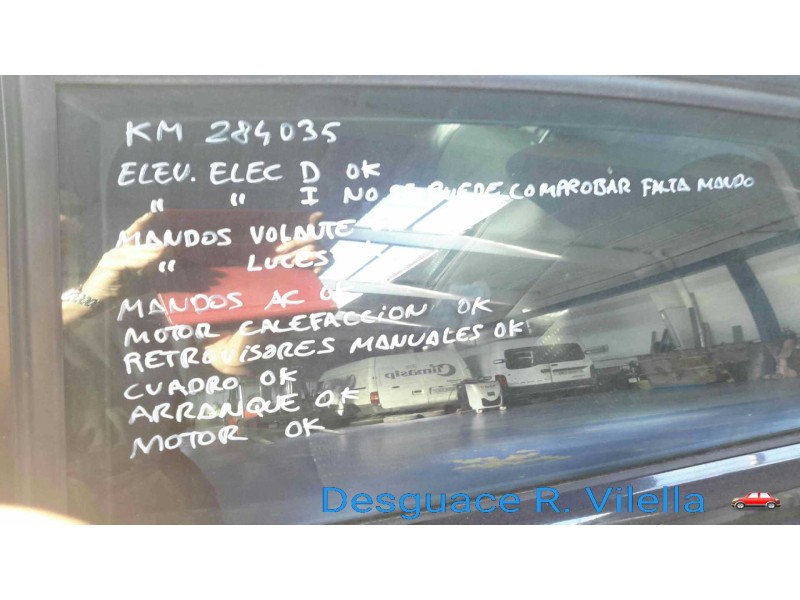 KM 284035
ELEV. ELEC D OK
" " I NO SE PUEDE COMPROBAR FALTA MANDO
MANDOS VOLANTE
" LUCES
MANDOS AC OK
MOTOR CALEFACCION OK
RETROVISORES MANUALES OK
CUADRO OK
ARRANQUE OK
MOTOR OK
Desguace R. Vilella